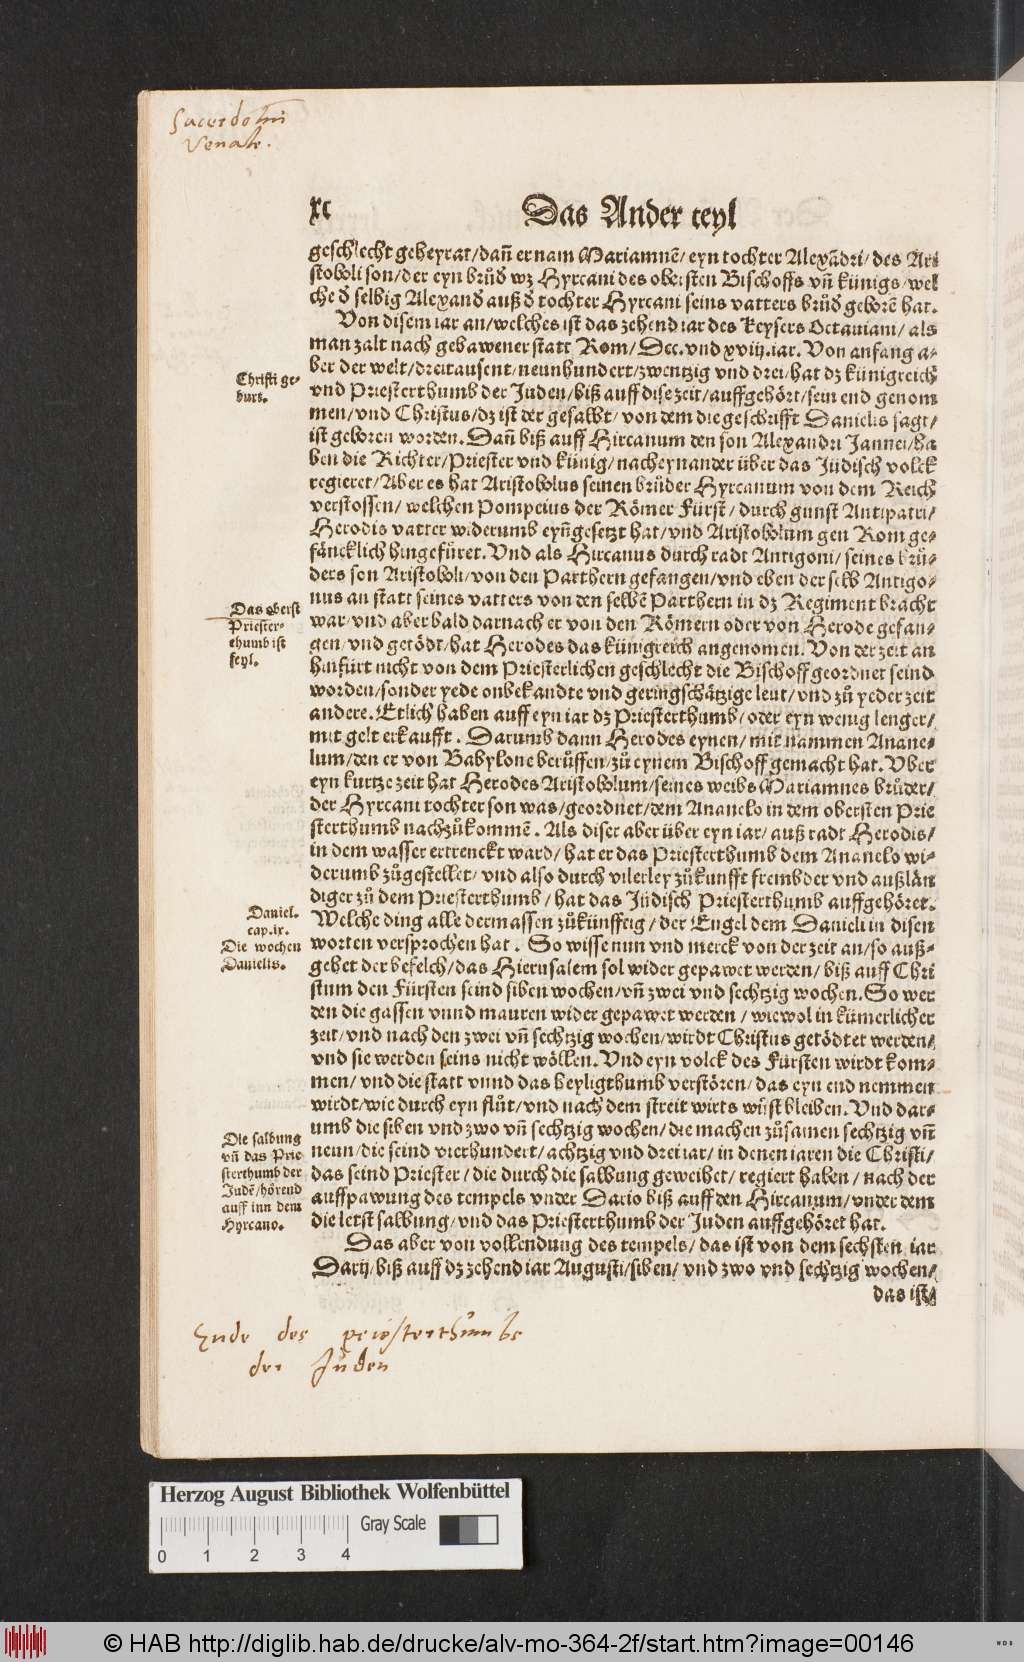 Sacerdotiū
Venale.
xc
Das Ander teyl
geschlecht geheyrat/dañ er nam Mariamnē/ eyn tochter Alexādri/ des Ari
stoboli son/der eyn brůd̄ wz Hyrcani des obersten Bischoffs vñ künigs/wel
che d̄ selbig Alexand̄ auß d̄ tochter Hyrcani seins vatters brůd̄ geborē hat.
Von disem iar an/welches ist das zehend iar des Keysers Octauiani/ als
man zalt nach gebawener statt Rom/ Dcc.vnd xviij.iar. Von anfang a⸗
ber der welt/dreitausent/neunhundert/zwentzig vnd drei/hat dz künigreich
vnd Priesterthumb der Juden/biß auff dise zeit/auffgehört/sein end genom
men/vnd Christus/dz ist der gesalbt/von dem die geschrifft Danielis sagt/
ist geboren worden. Dañ biß auff Hircanum den son Alexandri Jannei/ha
ben die Richter/Priester vnd künig/nacheynander über das Jüdisch volck
regieret/Aber es hat Aristobolus seinen brůder Hyrcanum von dem Reich
verstossen/welchen Pompeius der Römer Fürst/durch gunst Antipatri/
Herodis vatter widerumb eyñgesetzt hat/vnd Aristobolum gen Rom ge⸗
fäncklich hingefüret. Vnd als Hircanus durch radt Antigoni/seines brů⸗
ders son Aristoboli/von den Parthern gefangen/vnd eben der selb Antigo⸗
nus an statt seines vatters von den selbē Parthern in dz Regiment bracht
war/vnd aber bald darnach er von den Römern oder von Herode gefan⸗
gen/vnd getödt/hat Herodes das künigreich angenomen. Von der zeit an
hinfürt nicht von dem Priesterlichen geschlecht die Bischoff geordnet seind
worden/sonder yede onbekandte vnd geringschätzige leut/vnd zů yeder zeit
andere. Etlich haben auff eyn iar dz Priesterthumb/oder eyn wenig lenger/
mit gelt erkaufft. Darumb dann Herodes eynen/mit nammen Anane⸗
lum/den er von Babylone berůffen/zů eynem Bischoff gemacht hat. Vber
eyn kurtze zeit hat Herodes Aristobolum/seines weibs Mariamnes brůder/
der Hyrcani tochter son was/geordnet/dem Ananelo in dem obersten Prie
sterthumb nachzůkommē. Als diser aber über eyn iar/auß radt Herodis/
in dem wasser ertrenckt ward/hat er das Priesterthumb dem Ananelo wi⸗
derumb zůgestellet/vnd also durch vilerley zůkunfft frembder vnd außlän
diger zů dem Priesterthumb/hat das Jüdisch Priesterthumb auffgehöret.
Welche ding alle dermassen zůkünfftig/der Engel dem Danieli in disen
worten versprochen hat. So wisse nun vnd merck von der zeit an/so auß⸗
gehet der befelch/das Hierusalem sol wider gepawet werden/biß auff Chri
stum den Fürsten seind siben wochen/vñ zwei vnd sechtzig wochen. So wer
den die gassen vnnd mauren wider gepawet werden/wiewol in kümerlicher
zeit/vnd nach den zwei vñ sechtzig wochen/wirdt Christus getödtet werden/
vnd sie werden seins nicht wöllen. Vnd eyn volck des Fürsten wirdt kom⸗
men/vnd die statt vnnd das heyligthumb verstören/das eyn end nemmen
wirdt/wie durch eyn flůt/vnd nach dem streit wirts wüst bleiben. Vnd dar⸗
umb die siben vnd zwo vñ sechtzig wochen/die machen zůsamen sechtzig vñ
neun/die seind vierhundert/achtzig vnd drei iar/in denen iaren die Christi/
das seind Priester/die durch die salbung geweihet/regiert haben/nach der
auffpawung des tempels vnder Dario biß auff den Hircanum/vnder dem
die letst salbung/vnd das Priesterthumb der Juden auffgehöret hat.
Das aber von vollendung des tempels/das ist von dem sechsten iar
Darij/biß auff dz zehend iar Augusti/siben/vnd zwo vnd sechtzig wochen/
das ist/
Christi ge⸗
burt.
Das oberst
Priester⸗
thumb ist
feyl.
Daniel.
cap.ix.
Die wochen
Danielis.
Die salbung
vñ das Prie
sterthumb der
Judē/hörend
auff inn dem
Hyrcano.
Ende des priesterthumbs
der Juden
Herzog August Bibliothek Wolfenbüttel
Gray Scale
0 1 2 3 4
© HAB http://diglib.hab.de/drucke/alv-mo-364-2f/start.htm?image=00146